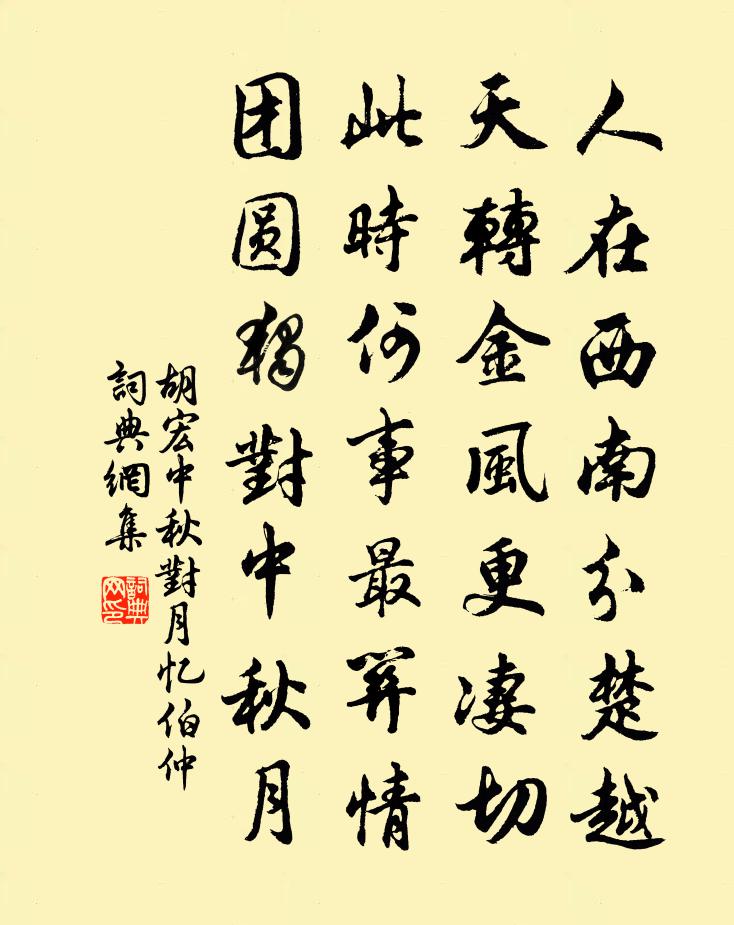 人在西南分楚越
天轉金風更凄切
此時何事最関情
团圆獨對中秋月
胡宏中秋對月忆伯仲
詞典網集
詞典网印